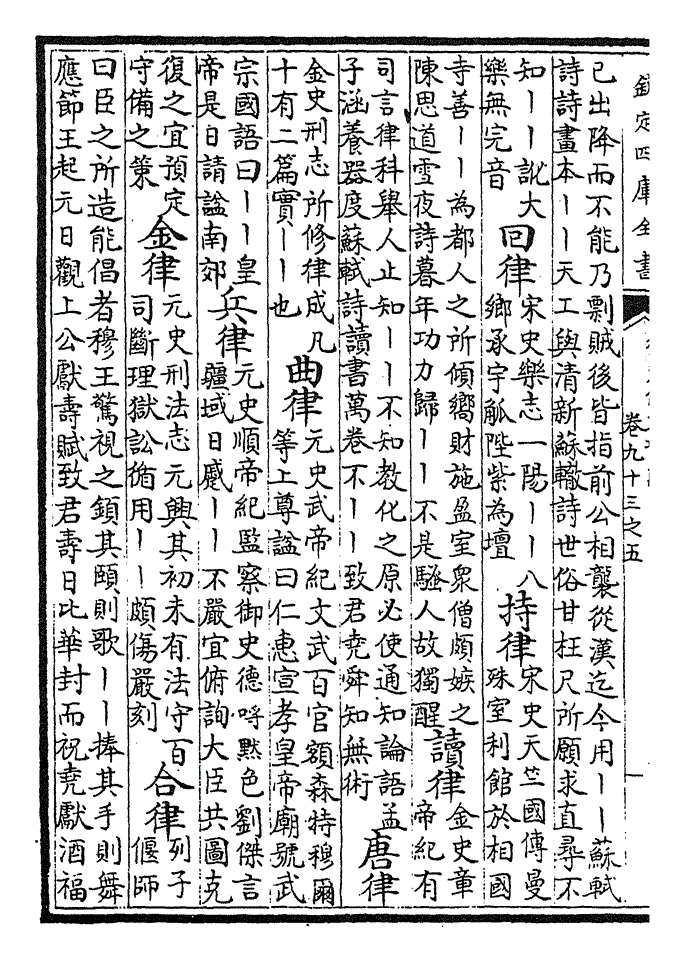 欽定四庫全書
卷九十三之五
已出降而不能乃剽賊後皆指前公相襲從漢迄今用丨丨蘇軾
詩詩畫本丨丨天工與清新蘇轍詩世俗甘枉尺所願求直尋不
知丨丨訛大
樂無完音
回律
宋史樂志一陽丨丨八
鄉承宇觚陛紫為壇
持律
宋史天竺國傳曼
殊室利館於相國
寺善丨丨為都人之所傾嚮財施盈室衆僧頗嫉之
陳思道雪夜詩暮年功力歸丨丨不是騷人故獨醒
讀律
金史章
帝紀有
司言律科舉人止知丨丨不知教化之原必使通知論語孟
子涵養器度蘇軾詩讀書萬卷不丨丨致君堯舜知無術
唐律
金史刑志所修律成凡
十有二篇實丨丨也
曲律
元史武帝紀文武百官額森特穆爾
等上尊諡曰仁惠宣孝皇帝廟號武
宗國語曰丨丨皇
帝是日請諡南郊
兵律
元史順帝紀監察御史德呼默色劉傑言
疆域日蹙丨丨不嚴宜俯詢大臣共圖克
復之宜預定
守備之策
金律
元史刑法志元興其初未有法守百
司斷理獄訟循用丨丨頗傷嚴刻
合律
列子
偃師
曰臣之所造能倡者穆王驚視之鎮其頤則歌丨丨捧其手則舞
應節王起元日觀上公獻壽賦致君壽日比華封而祝堯獻酒福